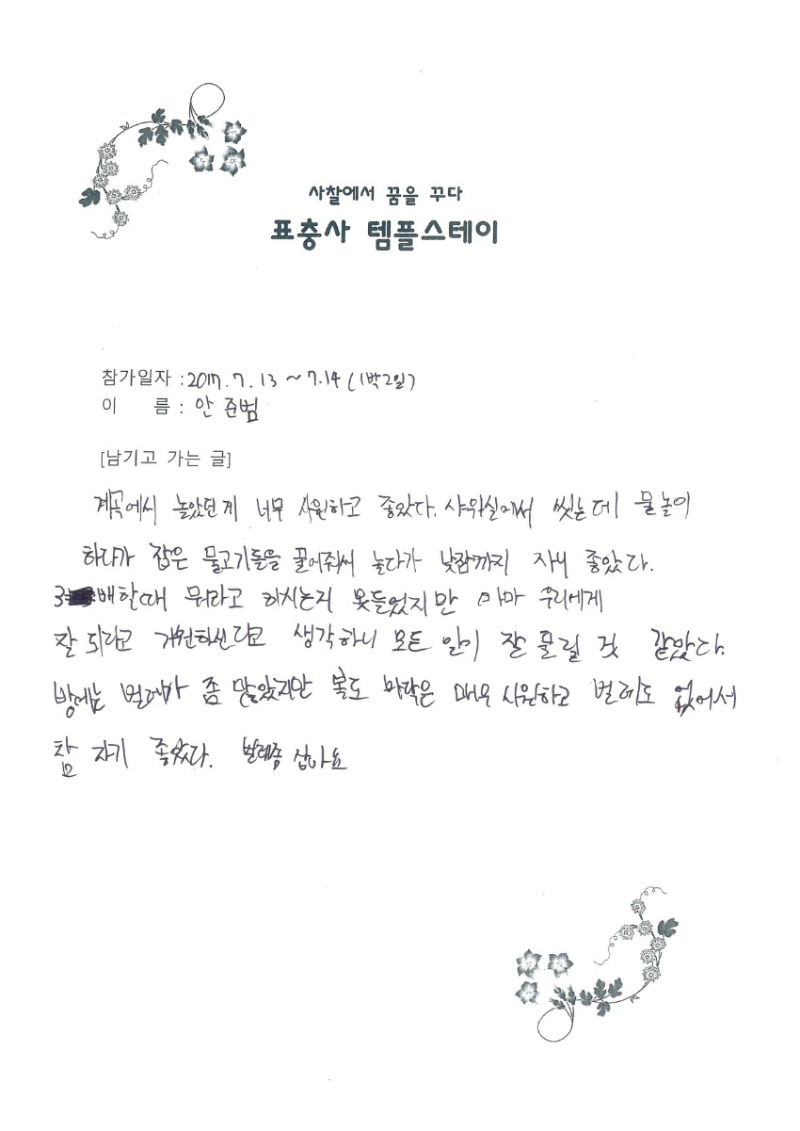 사찰에서 꿈을 꾸다
표충사 템플스테이
참가일자 : 2017. 7. 13 ~ 7.14 (1박2일)
이 름 : 안 준범
[남기고 가는 글]
계곡에서 놀았던 게 너무 시원하고 좋았다. 샤워실에서 씻는데 물놀이
하다가 잡은 물고기들을 풀어줘서 놀다가 낮잠까지 자니 좋았다.
3배 할때 뭐라고 하시는지 못들었지만 아마 우리에게
잘 되라고 기원하신다고 생각하니 모든 일이 잘 풀릴 것 같았다.
방에는 벌레가 좀 많았지만 복도 바닥은 매우 시원하고 벌레도 없어서
참 자기 좋았다.